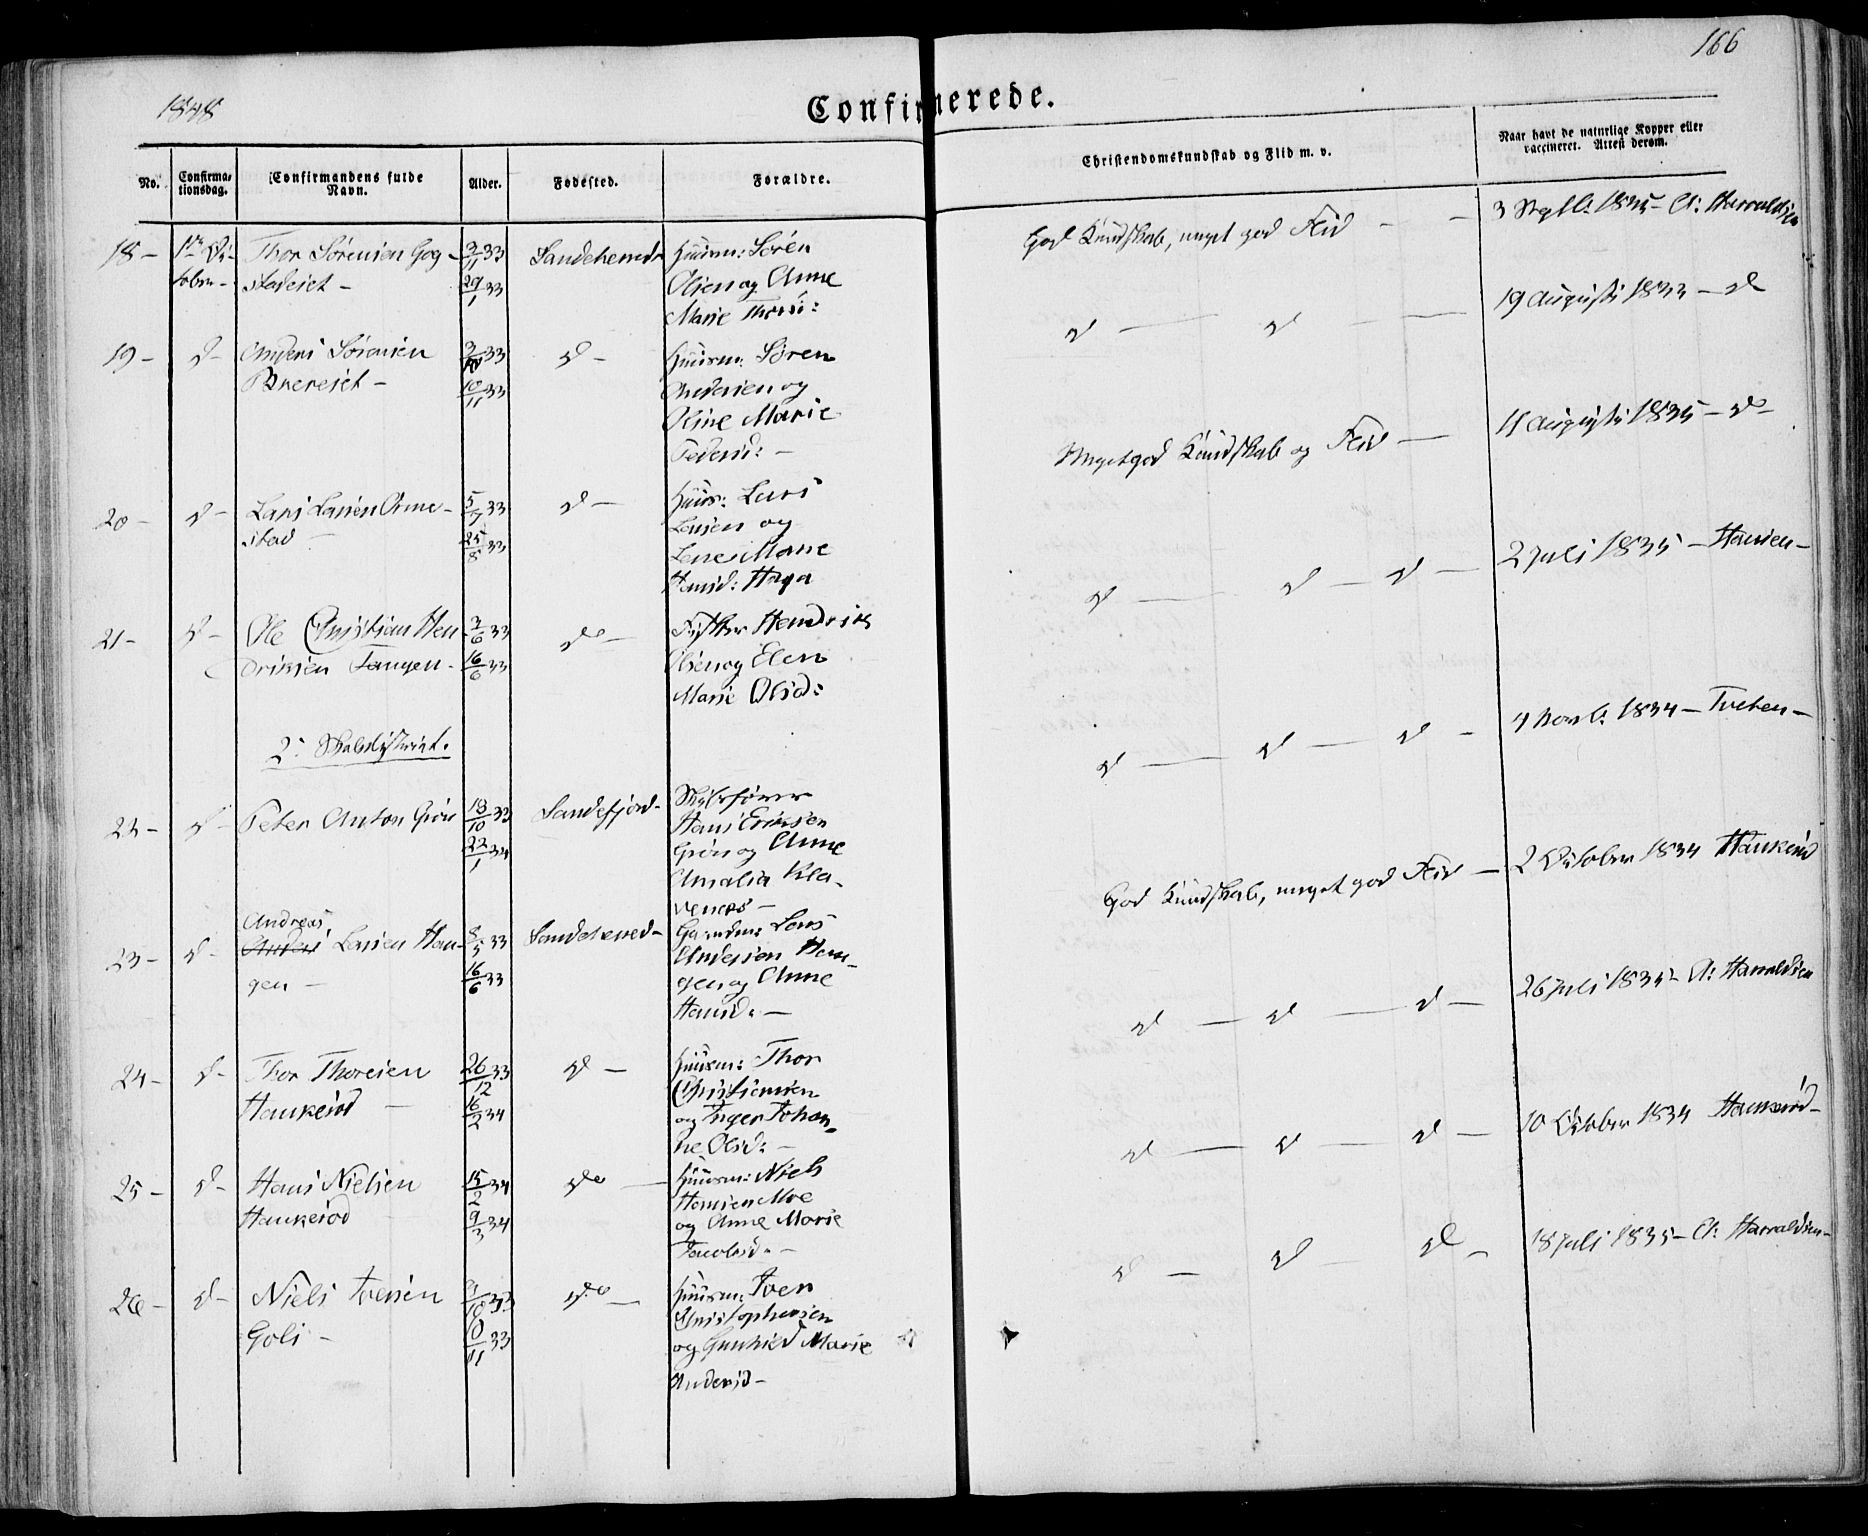 166
1848
Confirmerede.
No.
Confirma-
tionsdag.
Confirmandens fulde
Navn.
Alder.
Fødested.
Forældre.
Christendomskundskab og Flid m. v.
Naar havt de naturlige Kopper eller
vaccineret. Attest derom.
18 - 1ste Oc- Thor Sørensen Gog- 3/11 33 Sandeherred Huusm: Søren
tober - stadeiet - 29/1 33 Olsen og Anne
Marie Thorsd:
God Kundskab, meget god Flid - - 3 Septb: 1835 - A: Harraldsen
19 - d - Anders Sørensen 3/10 33 d - Huusm: Søren
Breeiet - 10/11 33 Andersen og
Oline Marie
Pedersd: -
d - d - 19 August 1833 - d
20 - d - Lars Larsen Orme- 5/7 33 d - Huus: Lars
stad - 25/8 33 Larsen og
Lene Marie
Hansd: Haga
Meget god Kundskab og Flid - 11 August 1835 - do -
21 - d - Ole Christian Hen- 3/6 33 do - Hendrik
driksen Tangen - 16/6 33 Olsen og Elen
Marie Olsd:
d - d - d - 2 Juli 1835 - Hansen -
2: Skoledistrict.
22 - d - Peter Anton Grøn 18/10 33 Sandefjord - Skibsfører
22/1 34 Hans Eriksen
Grøn og Anne
Amalia Kla-
veness -
d - d - d - 4 Novb: 1834 - Tveten -
23 - d - Andreas
Anders Larsen Hau- 8/5 33 Sandeherred - Gaardm: Lars
gen - 16/6 33 Andersen Hau-
gen og Anne
Hansd: -
God Kundskab, meget god Flid - 2 October 1834 Haukerød
24 - d - Thor Thoresen 26/12 33 d - Huusm: Thor
Haukerød - 16/2 34 Christiansen
og Inger Johan-
ne Olsd: -
d - d - d - 26 Juli 1835 - A: Harraldsen
25 - d - Hans Nielsen 15/2 34 do - Huusm: Niels
Haukerød - 9/3 34 Hansen Moe
og Anne Marie
Jacobsd: -
d - d - d - 10 October 1834 Haukerød -
26 - d - Niels Iversen /10 33 do - Huusm: Iver
Goli - 10/11 33 Christophersen
og Gunhild Marie
Andersd -
d - d - d - 18 Juli 1835 - A: Harraldsen -